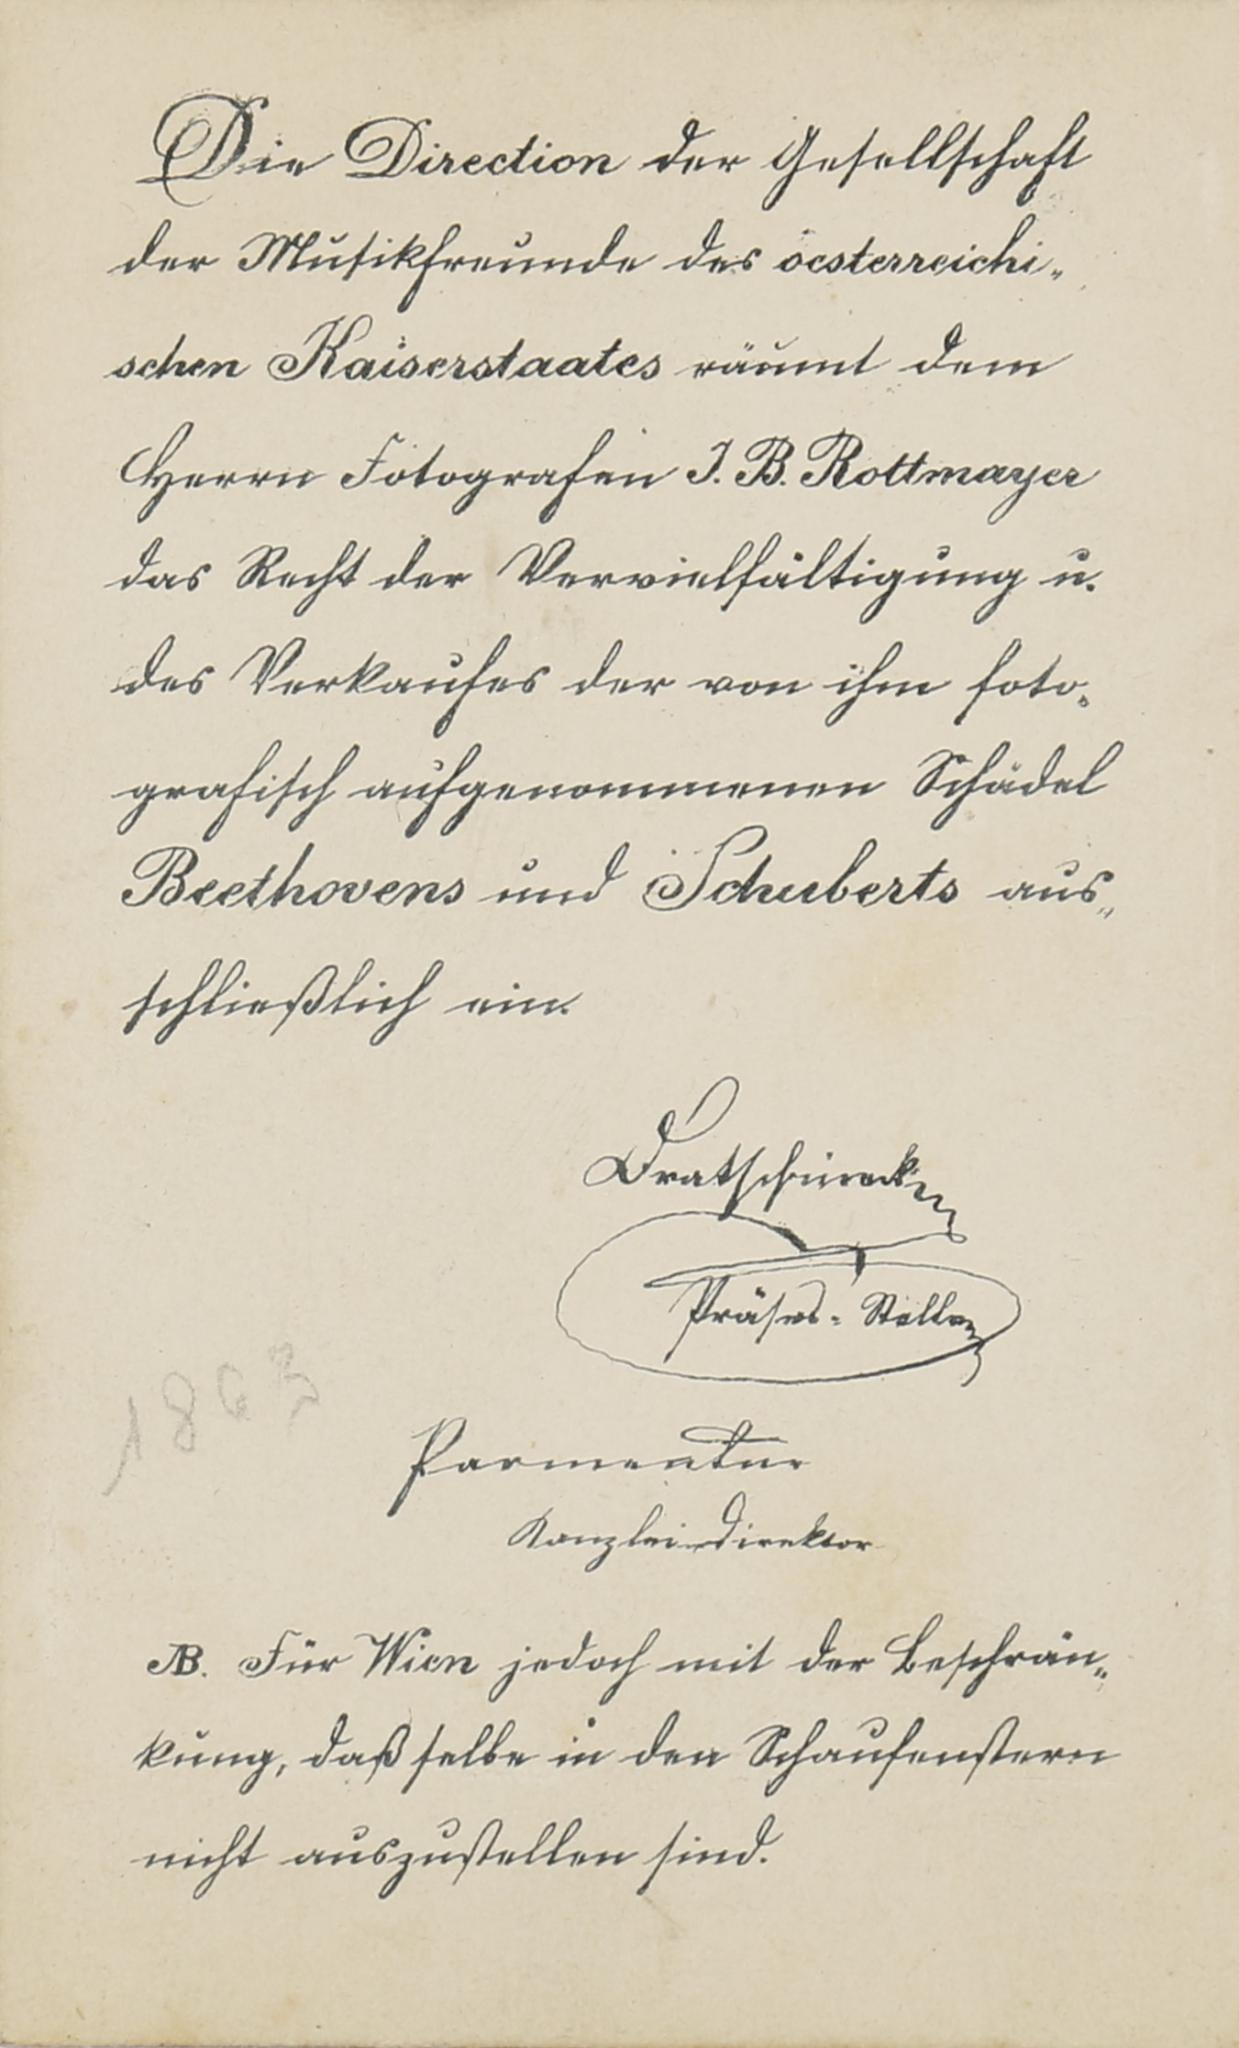 Die Direction der Gesellschaft
der Musikfreunde des oesterreichi-
schen Kaiserstaates räumt dem
Herrn Fotografen J. B. Rottmayer
das Recht der Vervielfältigung u.
des Verkaufes der von ihm foto-
grafisch aufgenommenen Schädel
Beethovens und Schuberts aus-
schließlich ein.
Präses-Stellv
1863
Kanzlei-direktor
NB. Für Wien jedoch mit der Beschrän-
kung, daß selbe in den Schaufenstern
nicht auszustellen sind.